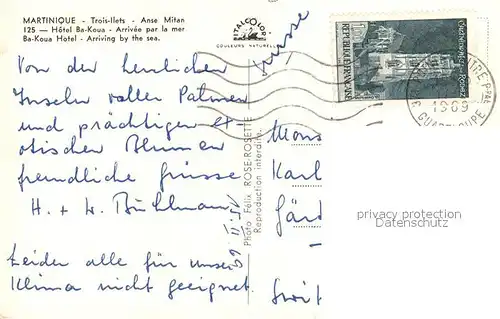 MARTINIQUE - Trois-Ilets - Anse Mitan
125 — Hôtel Ba-Koua - Arrivée par la mer
Ba-Koua Hotel - Arriving by the sea.
COULEURS NATURELLES
Suisse
Von der herrlichen
Inseln voller Palmen
und prächtigen ex
otischen Blumen
freundliche Grüsse
H. + W. Bühlmann
15. II. 69
Leider alle für unser
Klima nicht geeignet.
Photo Félix ROSE-ROSETTE
Reproduction interdite.
REPUBLIQUE FRANÇAISE
1969
GUADELOUPE
Mons
Karl
Gärt
privacy protection
Sammlerdienste